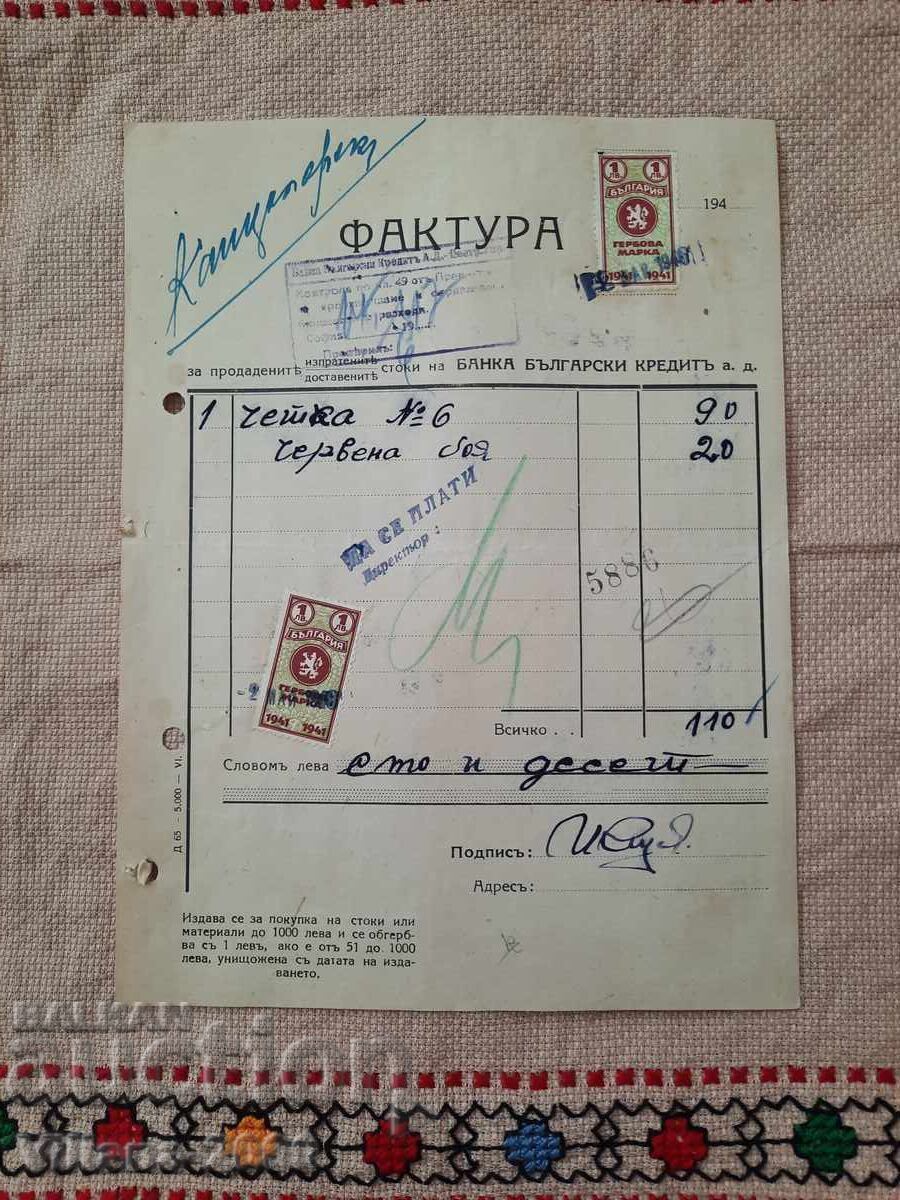 Канцеларски
1 ЛВ. 1 ЛВ.
БЪЛГАРИЯ
ГЕРБОВА
МАРКА
1941 1941
194
ФАКТУРА
Банка Български Кредитъ А.Д.
49 отъ
разходи.
София 19
Провѣрилъ:
за продаденитѣ изпратенитѣ доставенитѣ стоки на БАНКА БЪЛГАРСКИ КРЕДИТЪ а. д.
1 Четка № 6 90
червена боя 20
ДА СЕ ПЛАТИ
Директор:
5886
1 ЛВ. 1 ЛВ.
БЪЛГАРИЯ
ГЕРБОВА
МАРКА
1941 1941
Всичко . . 110
Словомъ лева сто и десет
Подписъ:
Адресъ:
Д 65 — 5.000 — VI.
Издава се за покупка на стоки или
материали до 1000 лева и се обгерб-
ва съ 1 левъ, ако е отъ 51 до 1000
лева, унищожена съ датата на изда-
ването.
BALKAN
auction